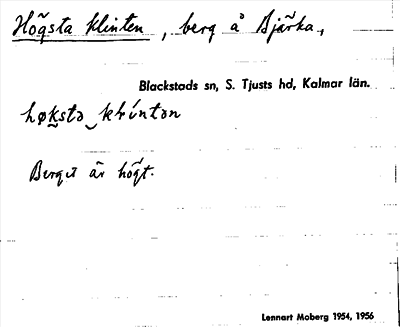 Högsta klinten, berg å Bjärka.,
Blackstads sn, S. Tjusts hd, Kalmar län.
Berget är högt.
Lennart Moberg 1954, 1956